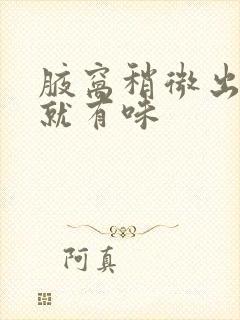 腋窝稍微出
就有味
阿真